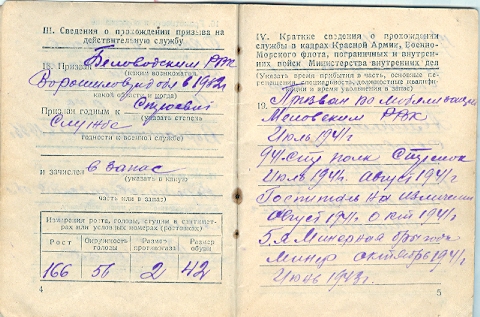 III. Сведения о прохождении призыва на
действительную службу
18. Призван Беловодским РВК
(каким военкоматом,
Ворошиловград обл в 1942г
какой области и когда)
Признан годным к строевой
(указать степень
службе
годности к военной службе)
и зачислен в запас
(указать в какую
часть или в запас)
Измерения роста, головы, ступни в сантиметрах или условных номерах (ростовках)
Рост Окружность головы Размер противогаза Размер обуви
166 56 2 42
4
IV. Краткие сведения о прохождении
службы в кадрах Красной Армии, Военно-
Морского флота, пограничных и внутрен-
них войск Министерства внутренних дел
(Указать время прибытия в часть, основные пе-
ремещения, специальность, должностные квалифи-
и время увольнения в запас)
19. Призван по мобилизации
Меловским РВК
Июль 1941г
94 полк Стрелок
Июль 1941г. август 1941г
Госпиталь на излечении
Август 1941г. окт 1941г
5я Минерной бригады
Минер октябрь 1941г
Июнь 1943г.
5